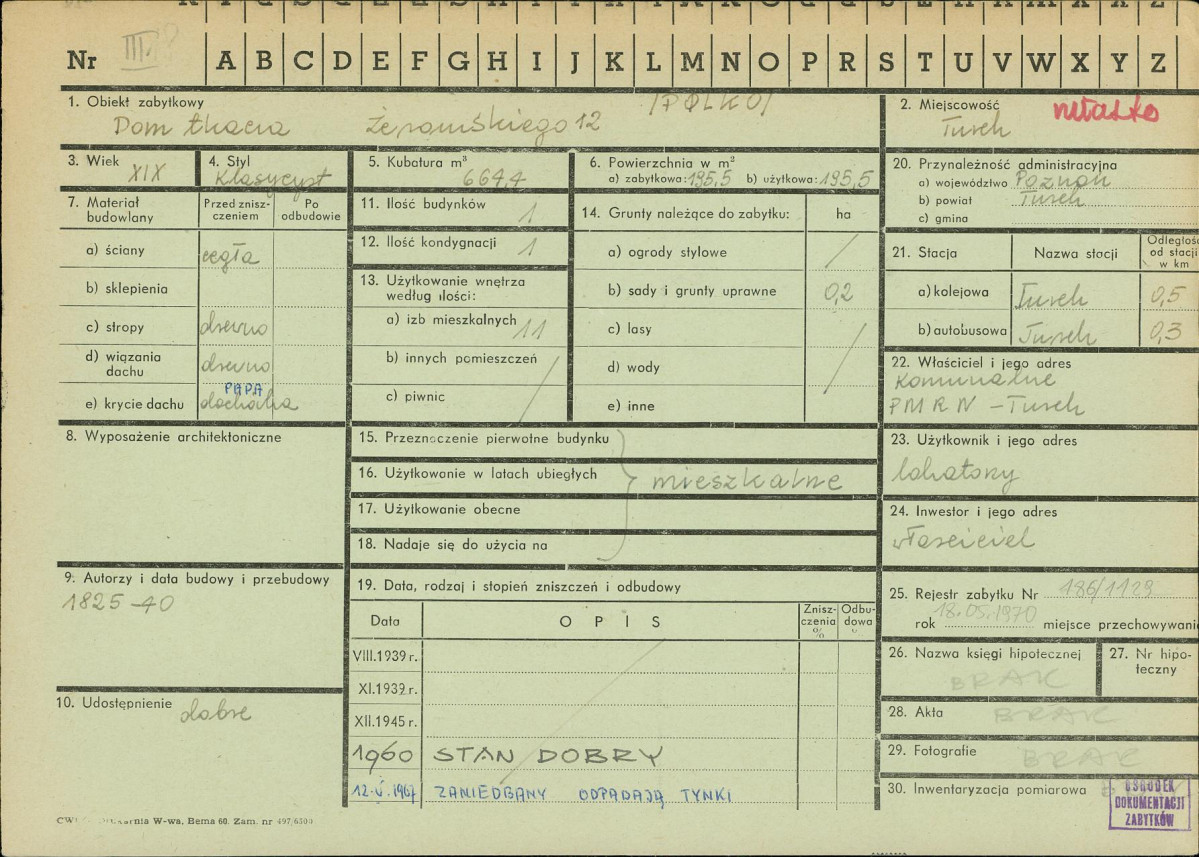 Nr III. A B C D E F G H I J K L M N O P R S T U V W X Y Z
1. Obiekt zabytkowy
/POLKO/
Dom tkacza Żeromskiego 12
2. Miejscowość miasto
Turek
3. Wiek XIX
4. Styl klasycyst
5. Kubatura m³ 664,4
6. Powierzchnia w m²
a) zabytkowa: 195,5 b) użytkowa: 195,5
7. Materiał budowlany
Przed znisz-
czeniem
Po
odbudowie
a) ściany cegła
b) sklepienia
c) stropy drewno
d) wiązania
dachu drewno
PAPA
e) krycie dachu dachówka
8. Wyposażenie architektoniczne
9. Autorzy i data budowy i przebudowy
1825-40
10. Udostępnienie dobre
11. Ilość budynków 1
12. Ilość kondygnacji 1
13. Użytkowanie wnętrza
według ilości:
a) izb mieszkalnych 11
b) innych pomieszczeń
c) piwnic
14. Grunty należące do zabytku: ha
a) ogrody stylowe
b) sady i grunty uprawne 0,2
c) lasy
d) wody
e) inne
15. Przeznaczenie pierwotne budynku
16. Użytkowanie w latach ubiegłych
mieszkalne
17. Użytkowanie obecne
18. Nadaje się do użycia na
19. Data, rodzaj i stopień zniszczeń i odbudowy
Data OPIS
Znisz-
czenia
%
Odbu-
dowa
VIII.1939 r.
XI.1939 r.
XII.1945 r.
1960 STAN DOBRY
12.V.1967 ZANIEDBANY ODPADAJĄ TYNKI
20. Przynależność administracyjna
a) województwo Poznań
b) powiat Turek
c) gmina
21. Stacja Nazwa stacji
Odległość
od stacji
w km
a) kolejowa Turek 0,5
b) autobusowa Turek 0,3
22. Właściciel i jego adres
Komunalne
PMRN - Turek
23. Użytkownik i jego adres
lokatorzy
24. Inwestor i jego adres
właściciel
25. Rejestr zabytku Nr 186/1129
rok 18.05.1970 miejsce przechowywani
26. Nazwa księgi hipotecznej
BRAK
27. Nr hipo-
teczny
28. Akta BRAK
29. Fotografie BRAK
30. Inwentaryzacja pomiarowa
OŚRODEK
DOKUMENTACJI
ZABYTKÓW
W-wa, Bema 60. Zam. nr 497/6500